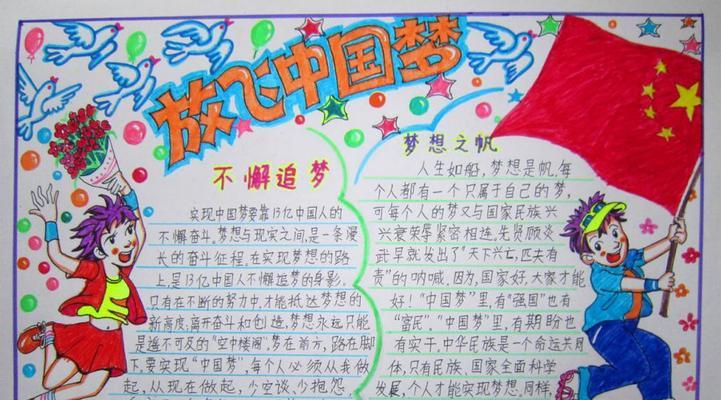 放飞中国梦
不懈追梦
实现中国梦要靠13亿中国人的
不懈奋斗。梦想与现实之间,是一条漫
长的奋斗征程,在实现梦想的路
上,是13亿中国人不懈追梦的身影。
只有在不断的努力中,才能抵达梦想的
新高度;离开奋斗和创造,梦想永远只能
是遥不可及的“空中楼阁”。梦在前方,路在脚
下,要实现“中国梦”,每个人必须从我做
起,从现在做起,少空谈、少抱怨,
梦想之帆
人生如船,梦想是帆。每
个人都有一个只属于自己的梦,
可每个人的梦又与国家民族兴
兴衰荣辱紧密相连。先贤顾炎
武早就发出了“天下兴亡,匹夫有
责”的呐喊。因为,国家好,大家才能
好!“中国梦”里,有“强国”也有
“富民”。“中国梦”里,有期盼也
有实干,中华民族是一个命运共同
体,只有民族、国家全面科学
发展,个人才能实现梦想。同样,